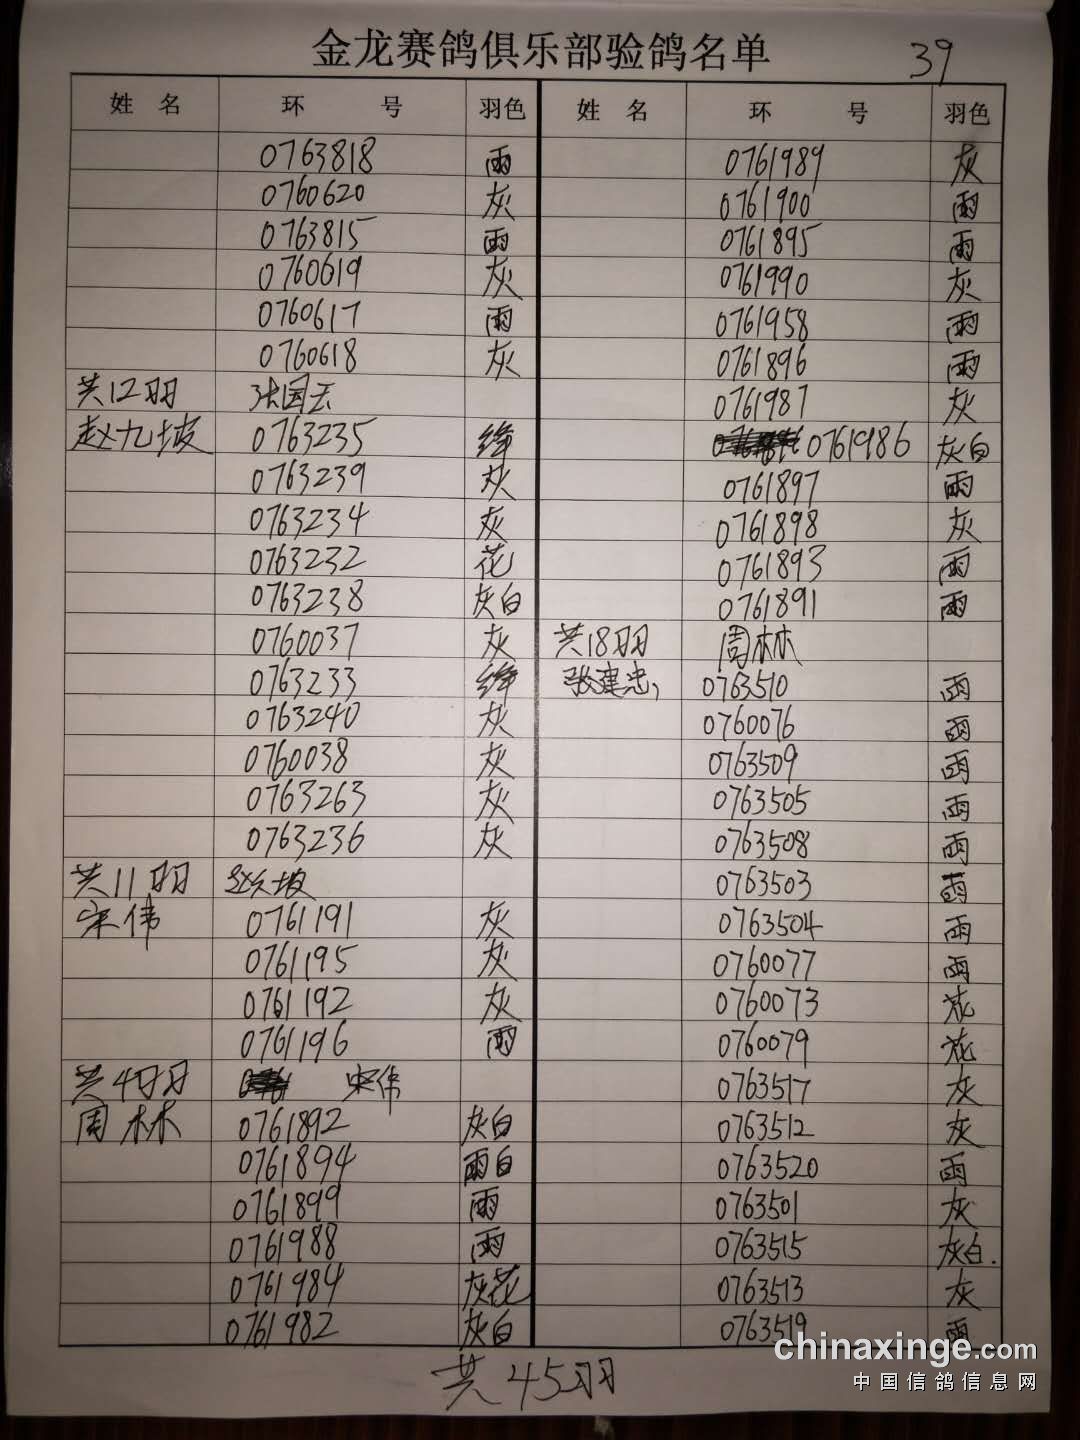 金龙赛鸽俱乐部验鸽名单
39
姓 名 环 号 羽色
0763818 雨
0760620 灰
0763815 雨
0760619 灰
0760617 雨
0760618 灰
共12羽 张国云
赵九坡 0763235 绛
0763239 灰
0763234 灰
0763232 花
0763238 灰白
0760037 灰
0763233 绛
0763240 灰
0760038 灰
0763263 灰
0763236 灰
共11羽 赵九坡
宋伟 0761191 灰
0761195 灰
0761192 灰
0761196 雨
共4羽 宋伟
周林 0761892 灰白
0761894 雨白
0761899 雨
0761988 雨
0761984 灰花
0761982 灰白
姓 名 环 号 羽色
0761989 灰
0761900 雨
0761895 雨
0761990 灰
0761958 雨
0761896 雨
0761987 灰
0761986 灰白
0761897 雨
0761898 灰
0761893 雨
0761891 雨
共18羽 周林
张建忠 0763510 雨
0760076 雨
0763509 雨
0763505 雨
0763508 雨
0763503 雨
0763504 雨
0760077 雨
0760073 花
0760079 花
0763517 灰
0763512 灰
0763520 雨
0763501 灰
0763515 灰白.
0763513 灰
0763519 雨
共45羽
chinaxinge.com
中国信鸽信息网